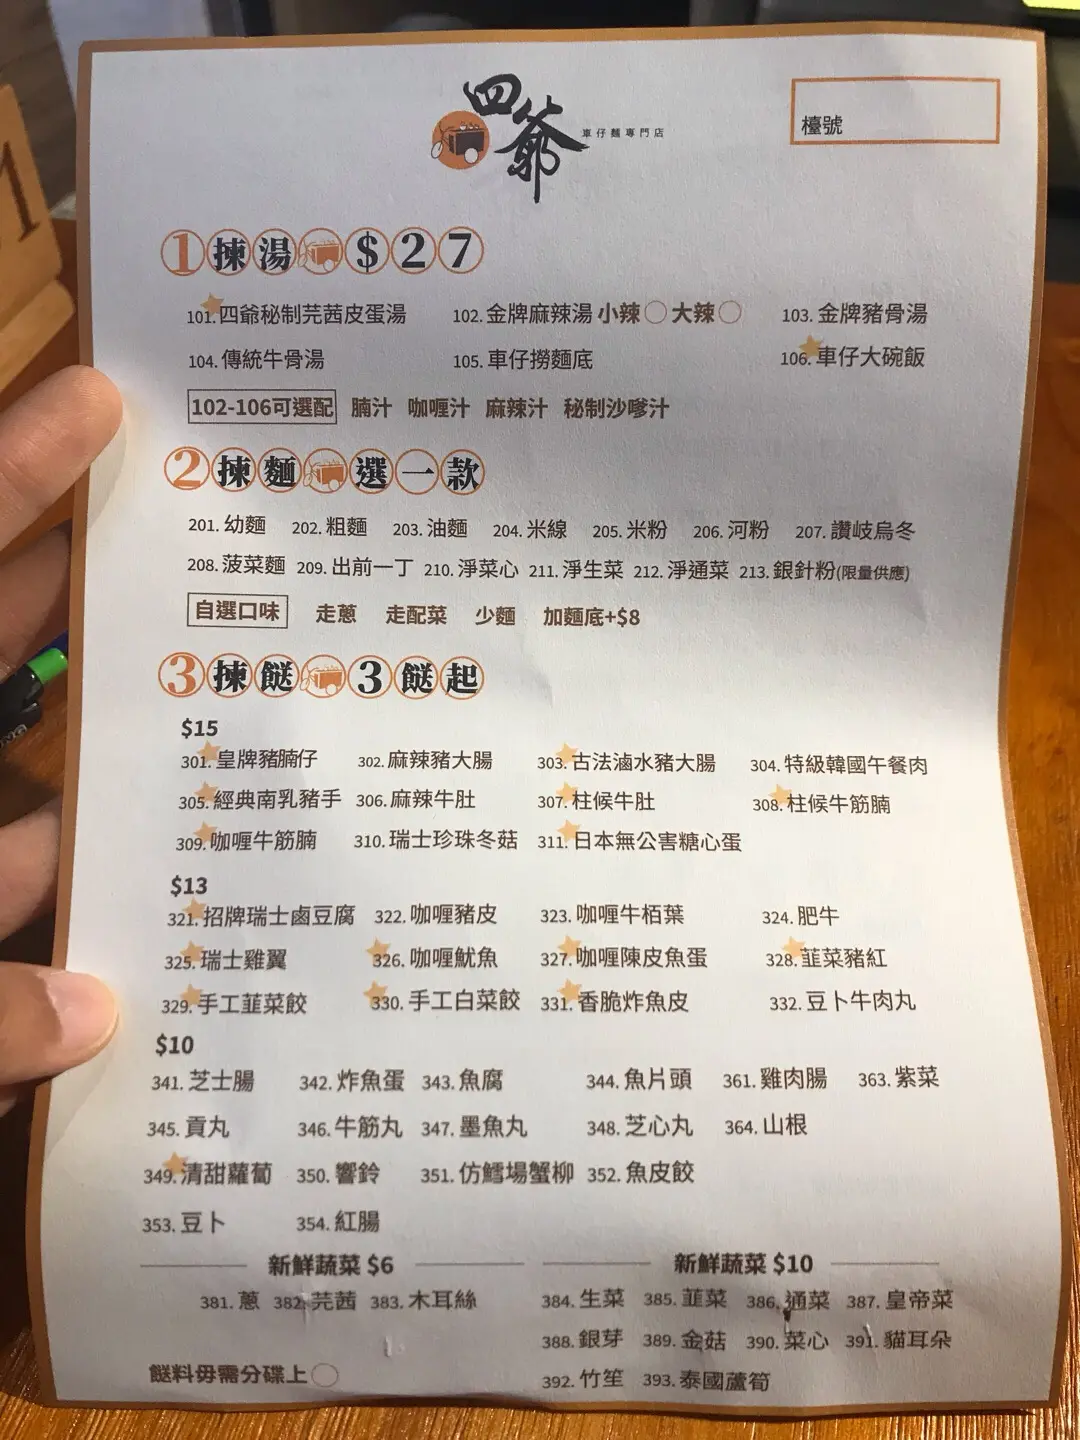 四爺
車仔麵專門店
檯號
1揀湯 $27
101.四爺秘制芫茜皮蛋湯 102.金牌麻辣湯 小辣○ 大辣○ 103.金牌豬骨湯
104.傳統牛骨湯 105.車仔撈麵底 106.車仔大碗飯
102-106可選配 腩汁 咖喱汁 麻辣汁 秘制沙嗲汁
2揀麵 選一款
201.幼麵 202.粗麵 203.油麵 204.米線 205.米粉 206.河粉 207.讚岐烏冬
208.菠菜麵 209.出前一丁 210.淨菜心 211.淨生菜 212.淨通菜 213.銀針粉(限量供應)
自選口味 走蔥 走配菜 少麵 加麵底+$8
3揀餸 3餸起
$15
301.皇牌豬腩仔 302.麻辣豬大腸 303.古法滷水豬大腸 304.特級韓國午餐肉
305.經典南乳豬手 306.麻辣牛肚 307.柱候牛肚 308.柱候牛筋腩
309.咖喱牛筋腩 310.瑞士珍珠冬菇 311.日本無公害糖心蛋
$13
321.招牌瑞士鹵豆腐 322.咖喱豬皮 323.咖喱牛栢葉 324.肥牛
325.瑞士雞翼 326.咖喱魷魚 327.咖喱陳皮魚蛋 328.韮菜豬紅
329.手工韮菜餃 330.手工白菜餃 331.香脆炸魚皮 332.豆卜牛肉丸
$10
341.芝士腸 342.炸魚蛋 343.魚腐 344.魚片頭 361.雞肉腸 363.紫菜
345.貢丸 346.牛筋丸 347.墨魚丸 348.芝心丸 364.山根
349.清甜蘿蔔 350.響鈴 351.仿鱈場蟹柳 352.魚皮餃
353.豆卜 354.紅腸
新鮮蔬菜 $6 新鮮蔬菜 $10
381.蔥 382.芫茜 383.木耳絲 384.生菜 385.韮菜 386.通菜 387.皇帝菜
388.銀芽 389.金菇 390.菜心 391.貓耳朵
餸料毋需分碟上○ 392.竹笙 393.泰國蘆筍